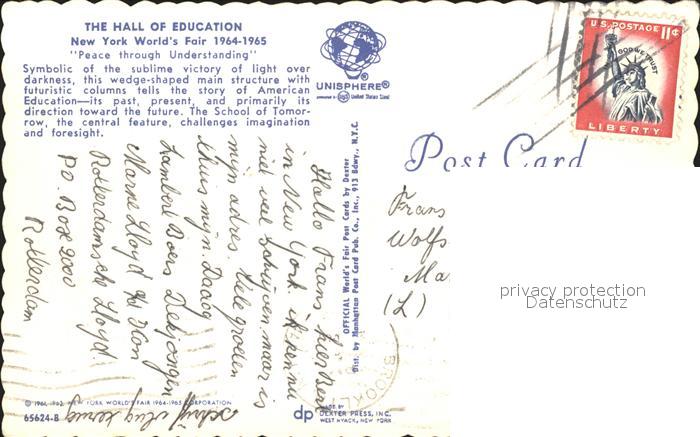 THE HALL OF EDUCATION
New York World's Fair 1964-1965
"Peace through Understanding"
Symbolic of the sublime victory of light over
darkness, this wedge-shaped main structure with
futuristic columns tells the story of American
Education—its past, present, and primarily its
direction toward the future. The School of Tomor-
row, the central feature, challenges imagination
and foresight.
UNISPHERE®
presented by USS United States Steel
U.S. POSTAGE 11¢
IN GOD WE TRUST
LIBERTY
Post Card
OFFICIAL World's Fair Post Cards by Dexter
Dist. by Manhattan Post Card Pub. Co., Inc., 913 Bdwy., N.Y.C.
Hallo Frans, hier Ben
in New York. ik ken nu
niet veel schrijven maar is
mijn adres. Vele groeten
thuis mijn.
Lambert Boers Dekjongen
Marne Lloyd
Rotterdamsche Lloyd.
PO. Box 2000
Rotterdam
schrijf vlug terug
Frans
Wolfs
Ma
(L)
privacy protection
Datenschutz
BROOKLY
© 1961, 1962, NEW YORK WORLD'S FAIR 1964-1965 CORPORATION
65624-B
dp MADE BY
DEXTER PRESS, INC.
WEST NYACK, NEW YORK